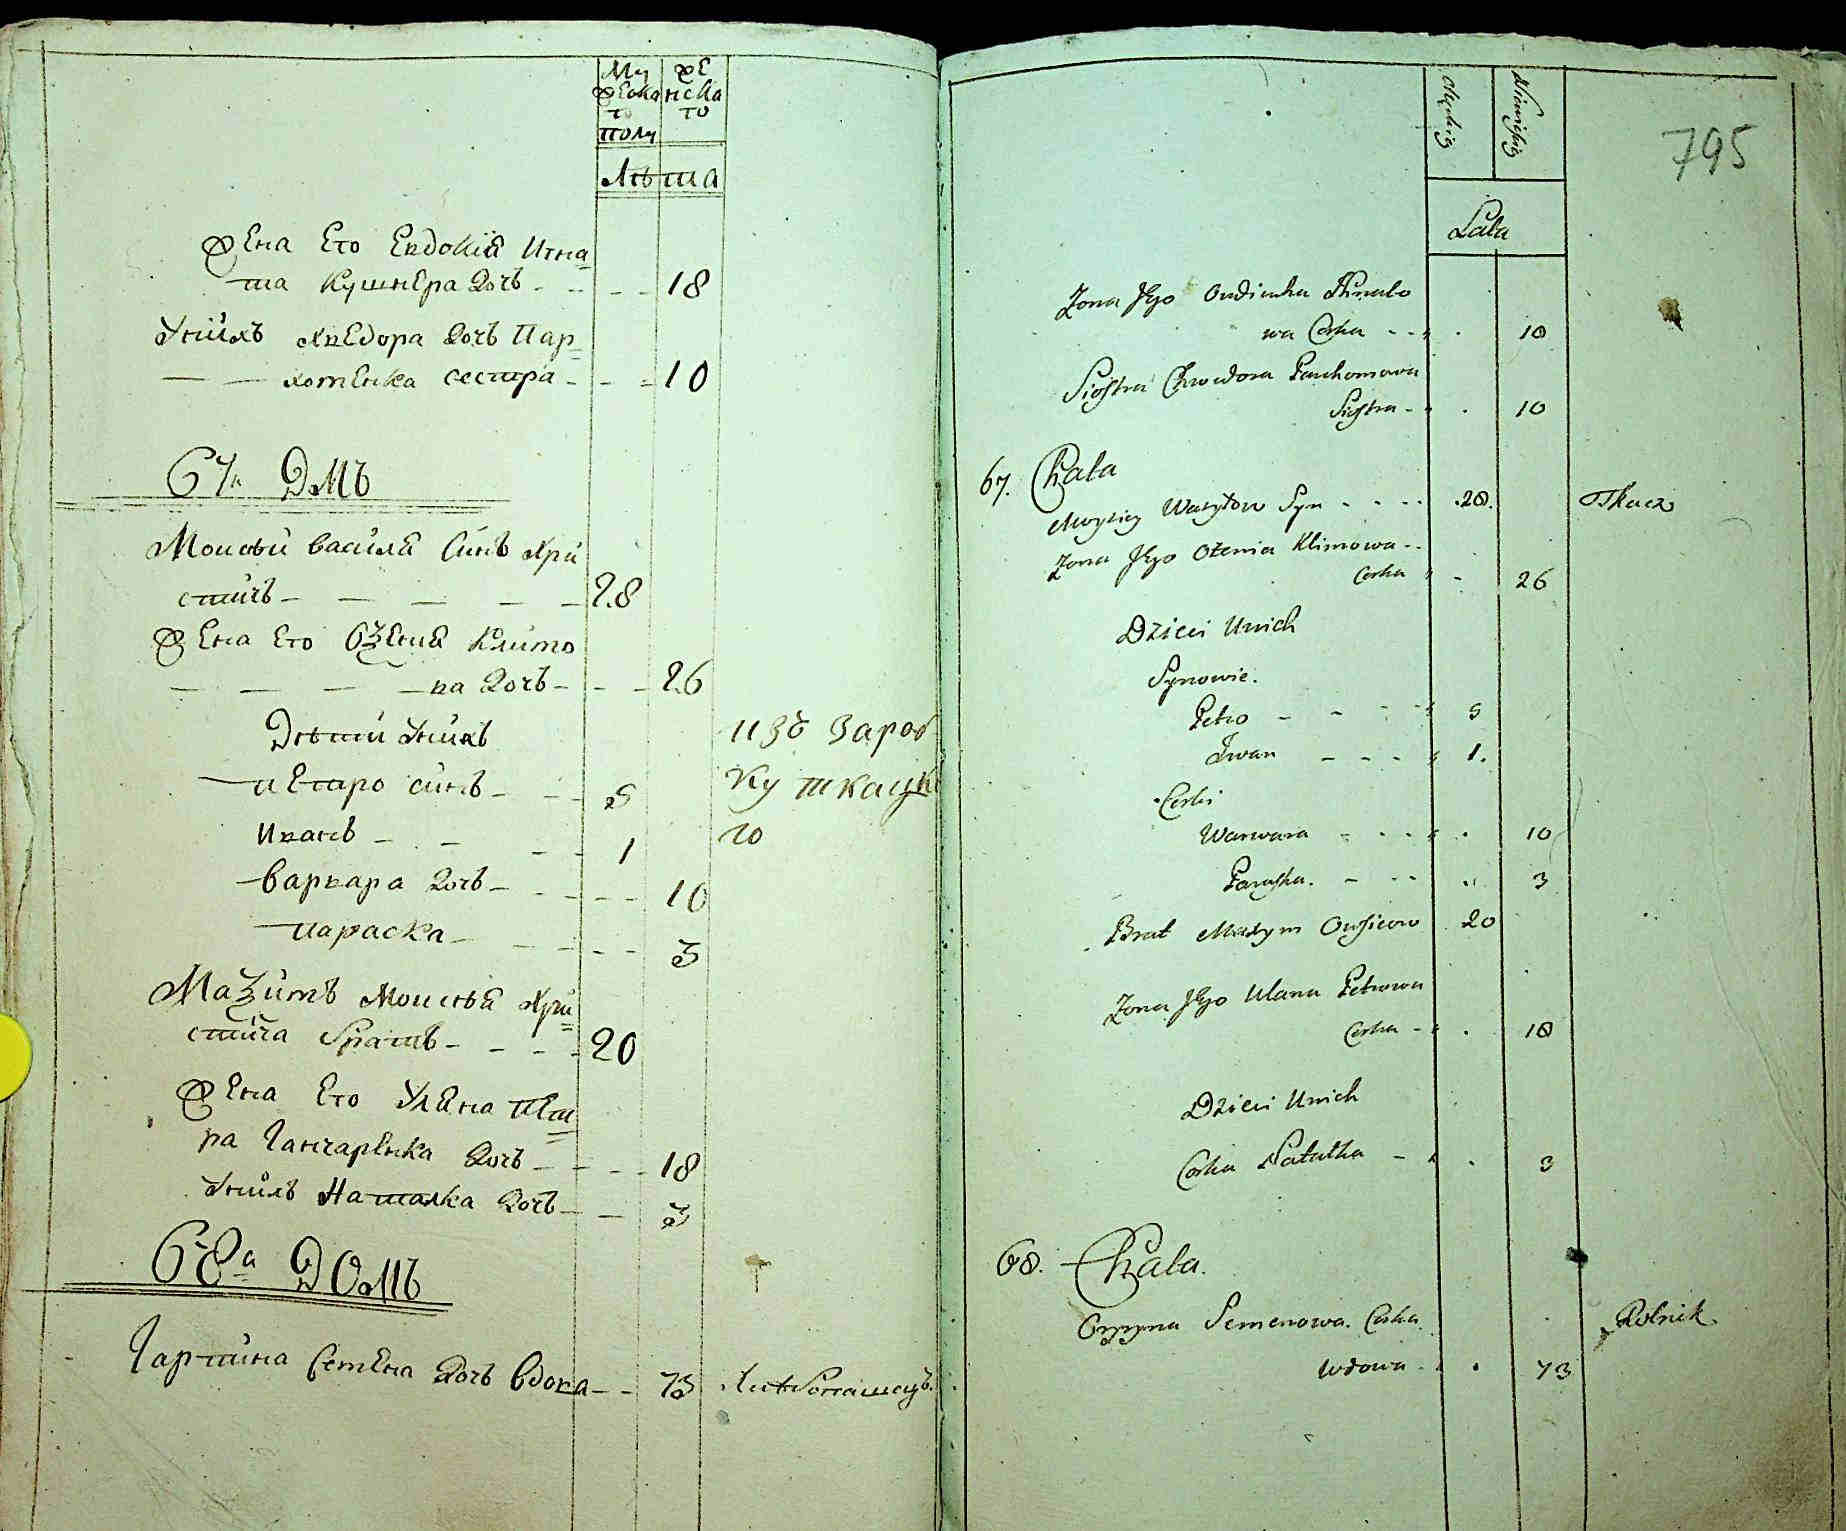 Му
жеска
го
полу
же
нска
го
Лѣта
Жена Его Евдокія Игна=
та Кушнѣра Дочъ - - - - 18
Унихъ Хведора Дочъ Пар=
хоменка сестра - - - 10
67й ДМЪ
Моисѣй василя Синъ Хри
стичъ - - - - - 28
Жена Его Озения Климо
ва Дочъ - - - 26
Дѣти Унихъ
петро синъ - - - 5
изъ зароб
Иванъ - - - - 1
ку ткацко
го
варвара Дочъ - - - - 10
параска - - - - - 3
Мазимъ Моисѣя Хри=
стича братъ - - - - 20
Жена Его Уляна Пет=
ра Ганчарѣнка Дочъ - - - - 18
Унихъ Наталка Дочъ - - 3
68а ДОМЪ
Гарпина Семена Дочъ вдова - - 73
795
Lata
Zona Jego Owdiucha
wa Corka - - 10
Siostra Chwedora Parchomowa
Siostra - 10
67. Chata
Moysiey Wasylow Syn - - - - 28. Tkacz
Zona Jego Ozenia Klimowa - -
Corka - 26
Dzieci Unich
Synowie.
Petro - - - - 5
Iwan - - - - 1.
Corki
Warwara - - - 10
Paraska. - - - 3
Brat Maxym 20
Zona Jego Ulana Petrowa
Corka - 18
Dzieci Unich
Corka Natałka - 3
68. Chata.
Semenowa. Corka Rolnik
Wdowa - 73